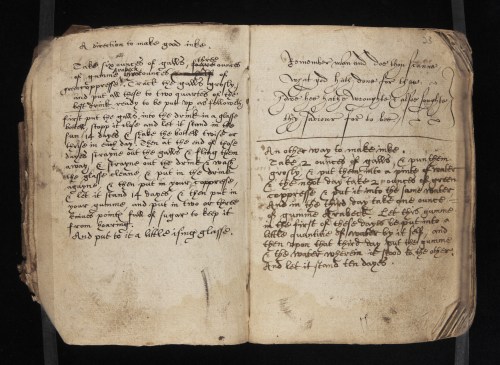 A direction to make good inke.
Take six ounces of galls, three ounces
of gumme of
and put all these to two quartes of the
best drink ready to be put up as followeth
first put the galls into the drink in a glasse
bottell stopp it close and let it stand in the
sun 14 dayes & shake the bottell twise or
thrise in every day. Then at the end of those
dayes strayne out the galls & fling them
away, & strayne out the drink & wash
the glasse cleane & put in the drink
agayne, & then put in your copperesse
& let it stand 14 dayes, & then put in
your gumme, and put in two or three
pointe full of sugar to keep it
from hoaring.
And put to it a little ising glasse.
38
Remember man and doe thou
what god hath done for thee
thy saviour for to bee
An other way to make inke.
Take 2 ounces of galls, & pun them
grosly, & put them into a pinte of water
& the next day take 2 ounces of green
copperesse & put into the same water
And in the third day take one ounce
of gumme Arabeck. Let this gumme
in the first of these dayes be put into a
little quantitie of water by it self, and
then upon that third day put the gumme
& the water wherein it stood to the other.
And let it stand ten dayes.